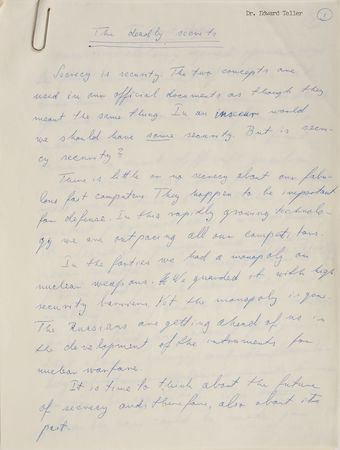 Dr. Edward Teller
1
The deadly secrets
Secrecy is security. The two concepts are
used in our official documents as though they
meant the same thing. In an insecure world
we should have some security. But is secre-
cy security?
There is little or no secrecy about our fabu-
lous fast computers. They happen to be important
for defense. In this rapidly growing technolo-
gy we are outpacing all our competitors.
In the forties we had a monopoly on
nuclear weapons. We guarded it with high
security barriers. Yet the monopoly is gone.
The Russians are getting ahead of us in
the development of the instruments for
nuclear warfare.
It is time to think about the future
of secrecy and, therefore, also about its
past.